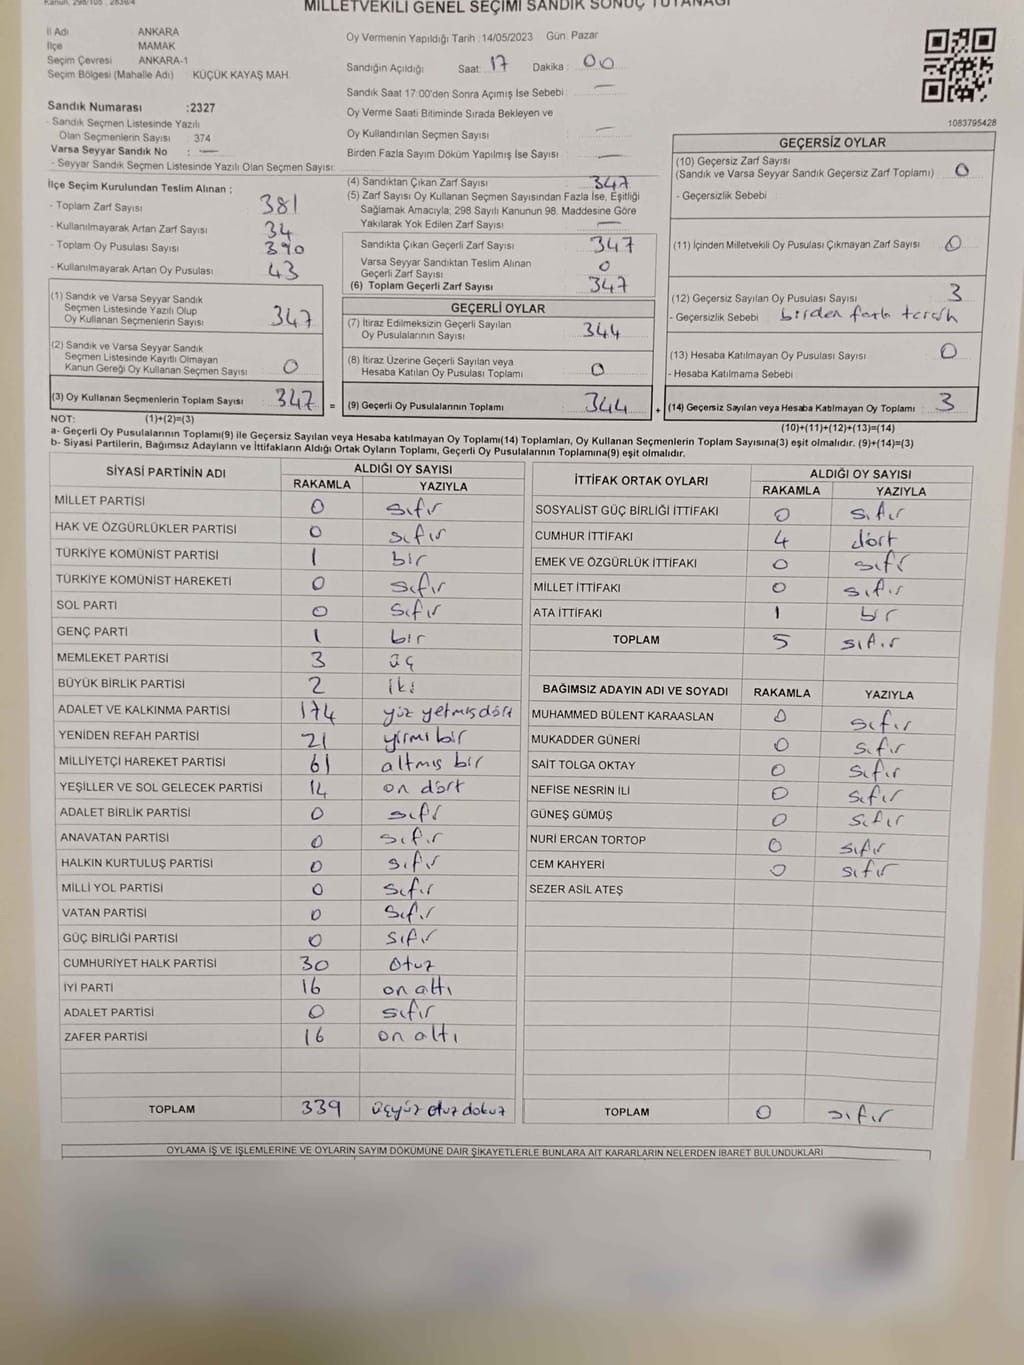 Kanun, 298/105 , 2839/4
MİLLETVEKİLİ GENEL SEÇİMİ SANDIK SONUÇ TUTANAĞI
İl Adı ANKARA
İlçe MAMAK
Seçim Çevresi ANKARA-1
Seçim Bölgesi (Mahalle Adı) : KÜÇÜK KAYAŞ MAH.
Sandık Numarası :2327
- Sandık Seçmen Listesinde Yazılı
Olan Seçmenlerin Sayısı : 374
Varsa Seyyar Sandık No : —
- Seyyar Sandık Seçmen Listesinde Yazılı Olan Seçmen Sayısı:
İlçe Seçim Kurulundan Teslim Alınan ;
- Toplam Zarf Sayısı 381
- Kullanılmayarak Artan Zarf Sayısı 34
- Toplam Oy Pusulası Sayısı 390
- Kullanılmayarak Artan Oy Pusulası 43
(1) Sandık ve Varsa Seyyar Sandık
Seçmen Listesinde Yazılı Olup
Oy Kullanan Seçmenlerin Sayısı 347
(2) Sandık ve Varsa Seyyar Sandık
Seçmen Listesinde Kayıtlı Olmayan
Kanun Gereği Oy Kullanan Seçmen Sayısı 0
(3) Oy Kullanan Seçmenlerin Toplam Sayısı 347 =
Oy Vermenin Yapıldığı Tarih :14/05/2023 Gün: Pazar
Sandığın Açıldığı Saat: 17 Dakika : 00
Sandık Saat 17:00'den Sonra Açımış İse Sebebi : —
Oy Verme Saati Bitiminde Sırada Bekleyen ve
Oy Kullandırılan Seçmen Sayısı : —
Birden Fazla Sayım Döküm Yapılmış İse Sayısı : —
(4) Sandıktan Çıkan Zarf Sayısı 347
(5) Zarf Sayısı Oy Kullanan Seçmen Sayısından Fazla İse, Eşitliği
Sağlamak Amacıyla; 298 Sayılı Kanunun 98. Maddesine Göre
Yakılarak Yok Edilen Zarf Sayısı : —
Sandıkta Çıkan Geçerli Zarf Sayısı 347
Varsa Seyyar Sandıktan Teslim Alınan
Geçerli Zarf Sayısı 0
(6) Toplam Geçerli Zarf Sayısı 347
GEÇERLİ OYLAR
(7) İtiraz Edilmeksizin Geçerli Sayılan
Oy Pusulalarının Sayısı 344
(8) İtiraz Üzerine Geçerli Sayılan veya
Hesaba Katılan Oy Pusulası Toplamı 0
(9) Geçerli Oy Pusulalarının Toplamı 344 +
1083795428
GEÇERSİZ OYLAR
(10) Geçersiz Zarf Sayısı
(Sandık ve Varsa Seyyar Sandık Geçersiz Zarf Toplamı) : 0
- Geçersizlik Sebebi
(11) İçinden Milletvekili Oy Pusulası Çıkmayan Zarf Sayısı 0
(12) Geçersiz Sayılan Oy Pusulası Sayısı 3
- Geçersizlik Sebebi birden fazla tercih
(13) Hesaba Katılmayan Oy Pusulası Sayısı 0
- Hesaba Katılmama Sebebi
(14) Geçersiz Sayılan veya Hesaba Katılmayan Oy Toplamı 3
NOT: (1)+(2)=(3) (10)+(11)+(12)+(13)=(14)
a- Geçerli Oy Pusulalarının Toplamı(9) ile Geçersiz Sayılan veya Hesaba katılmayan Oy Toplamı(14) Toplamları, Oy Kullanan Seçmenlerin Toplam Sayısına(3) eşit olmalıdır. (9)+(14)=(3)
b- Siyasi Partilerin, Bağımsız Adayların ve İttifakların Aldığı Ortak Oyların Toplamı, Geçerli Oy Pusulalarının Toplamına(9) eşit olmalıdır.
SİYASİ PARTİNİN ADI ALDIĞI OY SAYISI
RAKAMLA YAZIYLA
MİLLET PARTİSİ 0 sıfır
HAK VE ÖZGÜRLÜKLER PARTİSİ 0 sıfır
TÜRKİYE KOMÜNİST PARTİSİ 1 bir
TÜRKİYE KOMÜNİST HAREKETİ 0 sıfır
SOL PARTİ 0 sıfır
GENÇ PARTİ 1 bir
MEMLEKET PARTİSİ 3 üç
BÜYÜK BİRLİK PARTİSİ 2 iki
ADALET VE KALKINMA PARTİSİ 174 yüz yetmişdört
YENİDEN REFAH PARTİSİ 21 yirmi bir
MİLLİYETÇİ HAREKET PARTİSİ 61 altmış bir
YEŞİLLER VE SOL GELECEK PARTİSİ 14 on dört
ADALET BİRLİK PARTİSİ 0 sıfır
ANAVATAN PARTİSİ 0 sıfır
HALKIN KURTULUŞ PARTİSİ 0 sıfır
MİLLİ YOL PARTİSİ 0 sıfır
VATAN PARTİSİ 0 sıfır
GÜÇ BİRLİĞİ PARTİSİ 0 sıfır
CUMHURİYET HALK PARTİSİ 30 otuz
İYİ PARTİ 16 on altı
ADALET PARTİSİ 0 sıfır
ZAFER PARTİSİ 16 on altı
TOPLAM 339 üçyüz otuz dokuz
İTTİFAK ORTAK OYLARI ALDIĞI OY SAYISI
RAKAMLA YAZIYLA
SOSYALİST GÜÇ BİRLİĞİ İTTİFAKI 0 sıfır
CUMHUR İTTİFAKI 4 dört
EMEK VE ÖZGÜRLÜK İTTİFAKI 0 sıfır
MİLLET İTTİFAKI 0 sıfır
ATA İTTİFAKI 1 bir
TOPLAM 5 sıfır
BAĞIMSIZ ADAYIN ADI VE SOYADI RAKAMLA YAZIYLA
MUHAMMED BÜLENT KARAASLAN 0 sıfır
MUKADDER GÜNERİ 0 sıfır
SAİT TOLGA OKTAY 0 sıfır
NEFİSE NESRİN İLİ 0 sıfır
GÜNEŞ GÜMÜŞ 0 sıfır
NURİ ERCAN TORTOP 0 sıfır
CEM KAHYERİ 0 sıfır
SEZER ASİL ATEŞ
TOPLAM 0 sıfır
OYLAMA İŞ VE İŞLEMLERİNE VE OYLARIN SAYIM DÖKÜMÜNE DAİR ŞİKAYETLERLE BUNLARA AİT KARARLARIN NELERDEN İBARET BULUNDUKLARI